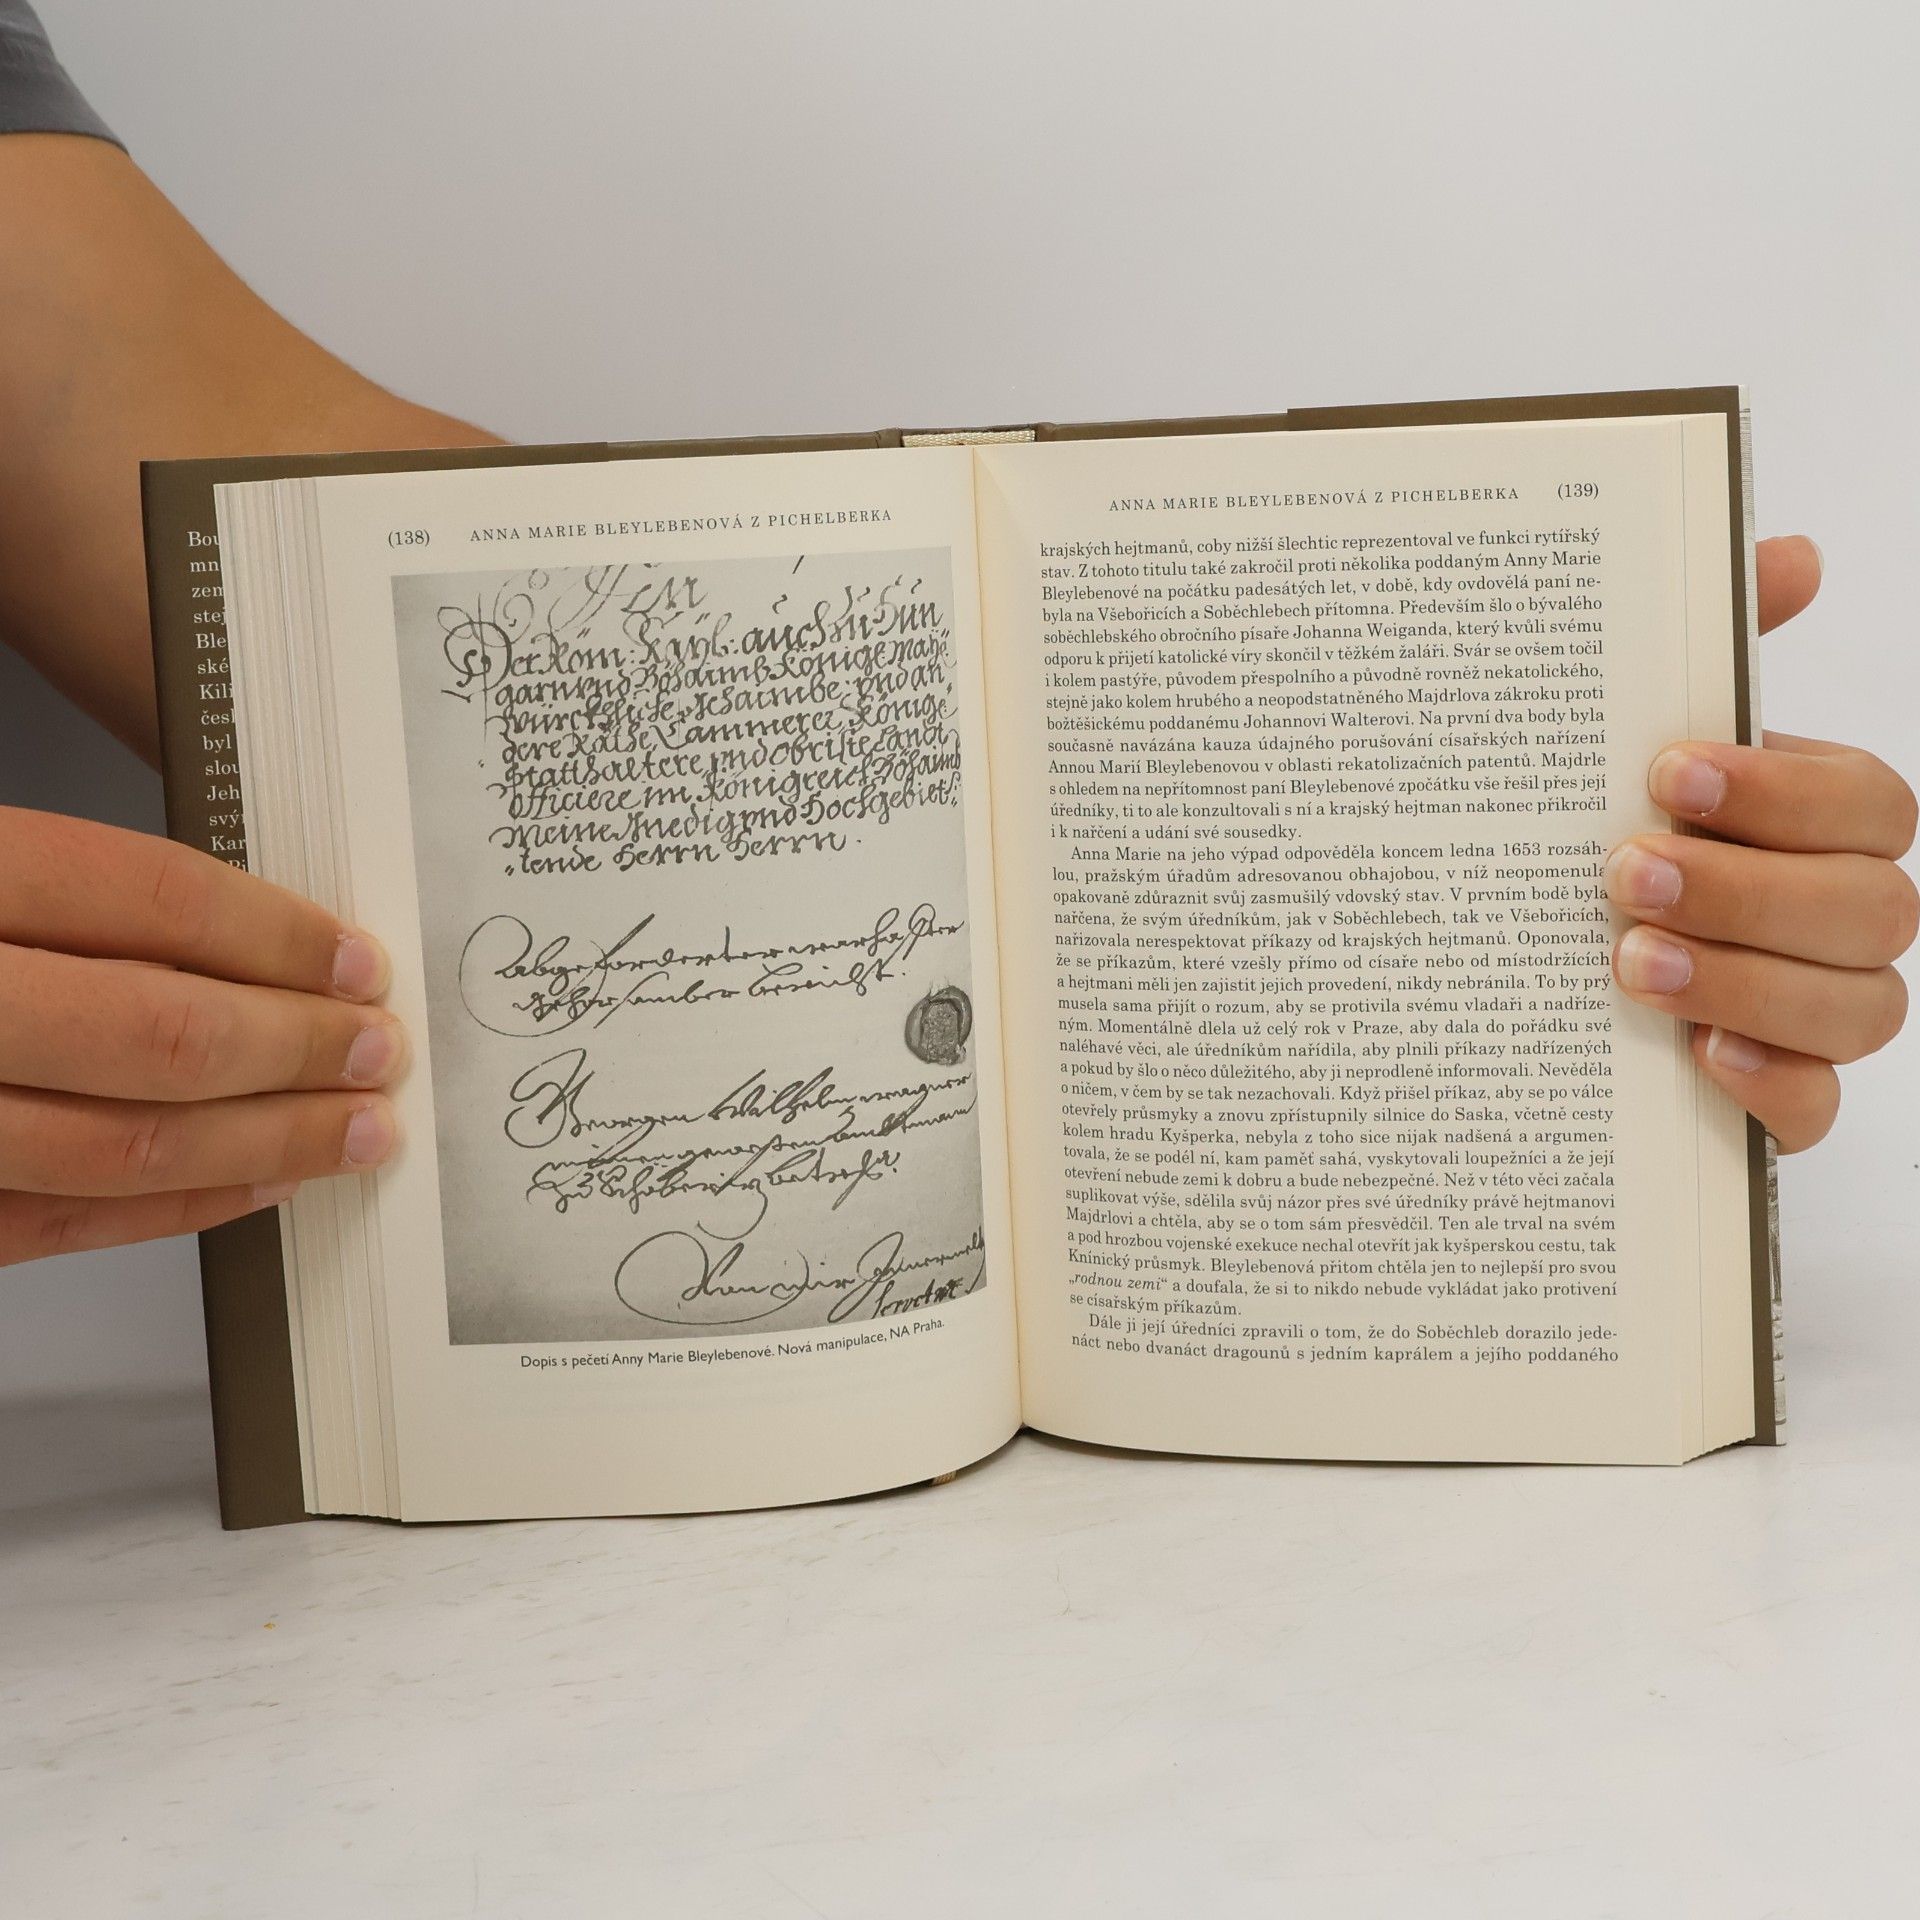 Bou
mn
zem
stej
Ble
ské
Kili
česk
byl
slou
Jeh
svý
Kar
(138) ANNA MARIE BLEYLEBENOVÁ Z PICHELBERKA
Der Röm: Kayß: auch zu Hun
garn vnd Böhaimb Königl: May:
Würckhliche Gehaimbe: vnd an
dere Räthe, Cammerer, Königl:
Statthaltere vnd Obriste Landt
Officiere im Königreich Böhaimb
Meine Gnedig vnd Hochgebiet=
tende Herrn Herrn.
Abgeforderter warhaffter
gehorsamber bericht.
Georgen Wilhelm wagner
zu Schöberiz betrefs.
Von mir
Dopis s pečetí Anny Marie Bleylebenové. Nová manipulace, NA Praha.
ANNA MARIE BLEYLEBENOVÁ Z PICHELBERKA (139)
krajských hejtmanů, coby nižší šlechtic reprezentoval ve funkci rytířský
stav. Z tohoto titulu také zakročil proti několika poddaným Anny Marie
Bleylebenové na počátku padesátých let, v době, kdy ovdovělá paní ne-
byla na Všebořicích a Soběchlebech přítomna. Především šlo o bývalého
soběchlebského obročního písaře Johanna Weiganda, který kvůli svému
odporu k přijetí katolické víry skončil v těžkém žaláři. Svár se ovšem točil
i kolem pastýře, původem přespolního a původně rovněž nekatolického,
stejně jako kolem hrubého a neopodstatněného Majdrlova zákroku proti
božtěšickému poddanému Johannovi Walterovi. Na první dva body byla
současně navázána kauza údajného porušování císařských nařízení
Annou Marií Bleylebenovou v oblasti rekatolizačních patentů. Majdrle
s ohledem na nepřítomnost paní Bleylebenové zpočátku vše řešil přes její
úředníky, ti to ale konzultovali s ní a krajský hejtman nakonec přikročil
i k nařčení a udání své sousedky.
Anna Marie na jeho výpad odpověděla koncem ledna 1653 rozsáh-
lou, pražským úřadům adresovanou obhajobou, v níž neopomenula
opakovaně zdůraznit svůj zasmušilý vdovský stav. V prvním bodě byla
nařčena, že svým úředníkům, jak v Soběchlebech, tak ve Všebořicích,
nařizovala nerespektovat příkazy od krajských hejtmanů. Oponovala,
že se příkazům, které vzešly přímo od císaře nebo od místodržících
a hejtmani měli jen zajistit jejich provedení, nikdy nebránila. To by prý
musela sama přijít o rozum, aby se protivila svému vladaři a nadříze-
ným. Momentálně dlela už celý rok v Praze, aby dala do pořádku své
naléhavé věci, ale úředníkům nařídila, aby plnili příkazy nadřízených
a pokud by šlo o něco důležitého, aby ji neprodleně informovali. Nevěděla
o ničem, v čem by se tak nezachovali. Když přišel příkaz, aby se po válce
otevřely průsmyky a znovu zpřístupnily silnice do Saska, včetně cesty
kolem hradu Kyšperka, nebyla z toho sice nijak nadšená a argumen-
tovala, že se podél ní, kam paměť sahá, vyskytovali loupežníci a že její
otevření nebude zemi k dobru a bude nebezpečné. Než v této věci začala
suplikovat výše, sdělila svůj názor přes své úředníky právě hejtmanovi
Majdrlovi a chtěla, aby se o tom sám přesvědčil. Ten ale trval na svém
a pod hrozbou vojenské exekuce nechal otevřít jak kyšperskou cestu, tak
Knínický průsmyk. Bleylebenová přitom chtěla jen to nejlepší pro svou
„rodnou zemi“ a doufala, že si to nikdo nebude vykládat jako protivení
se císařským příkazům.
Dále ji její úředníci zpravili o tom, že do Soběchleb dorazilo jede-
náct nebo dvanáct dragounů s jedním kaprálem a jejího poddaného